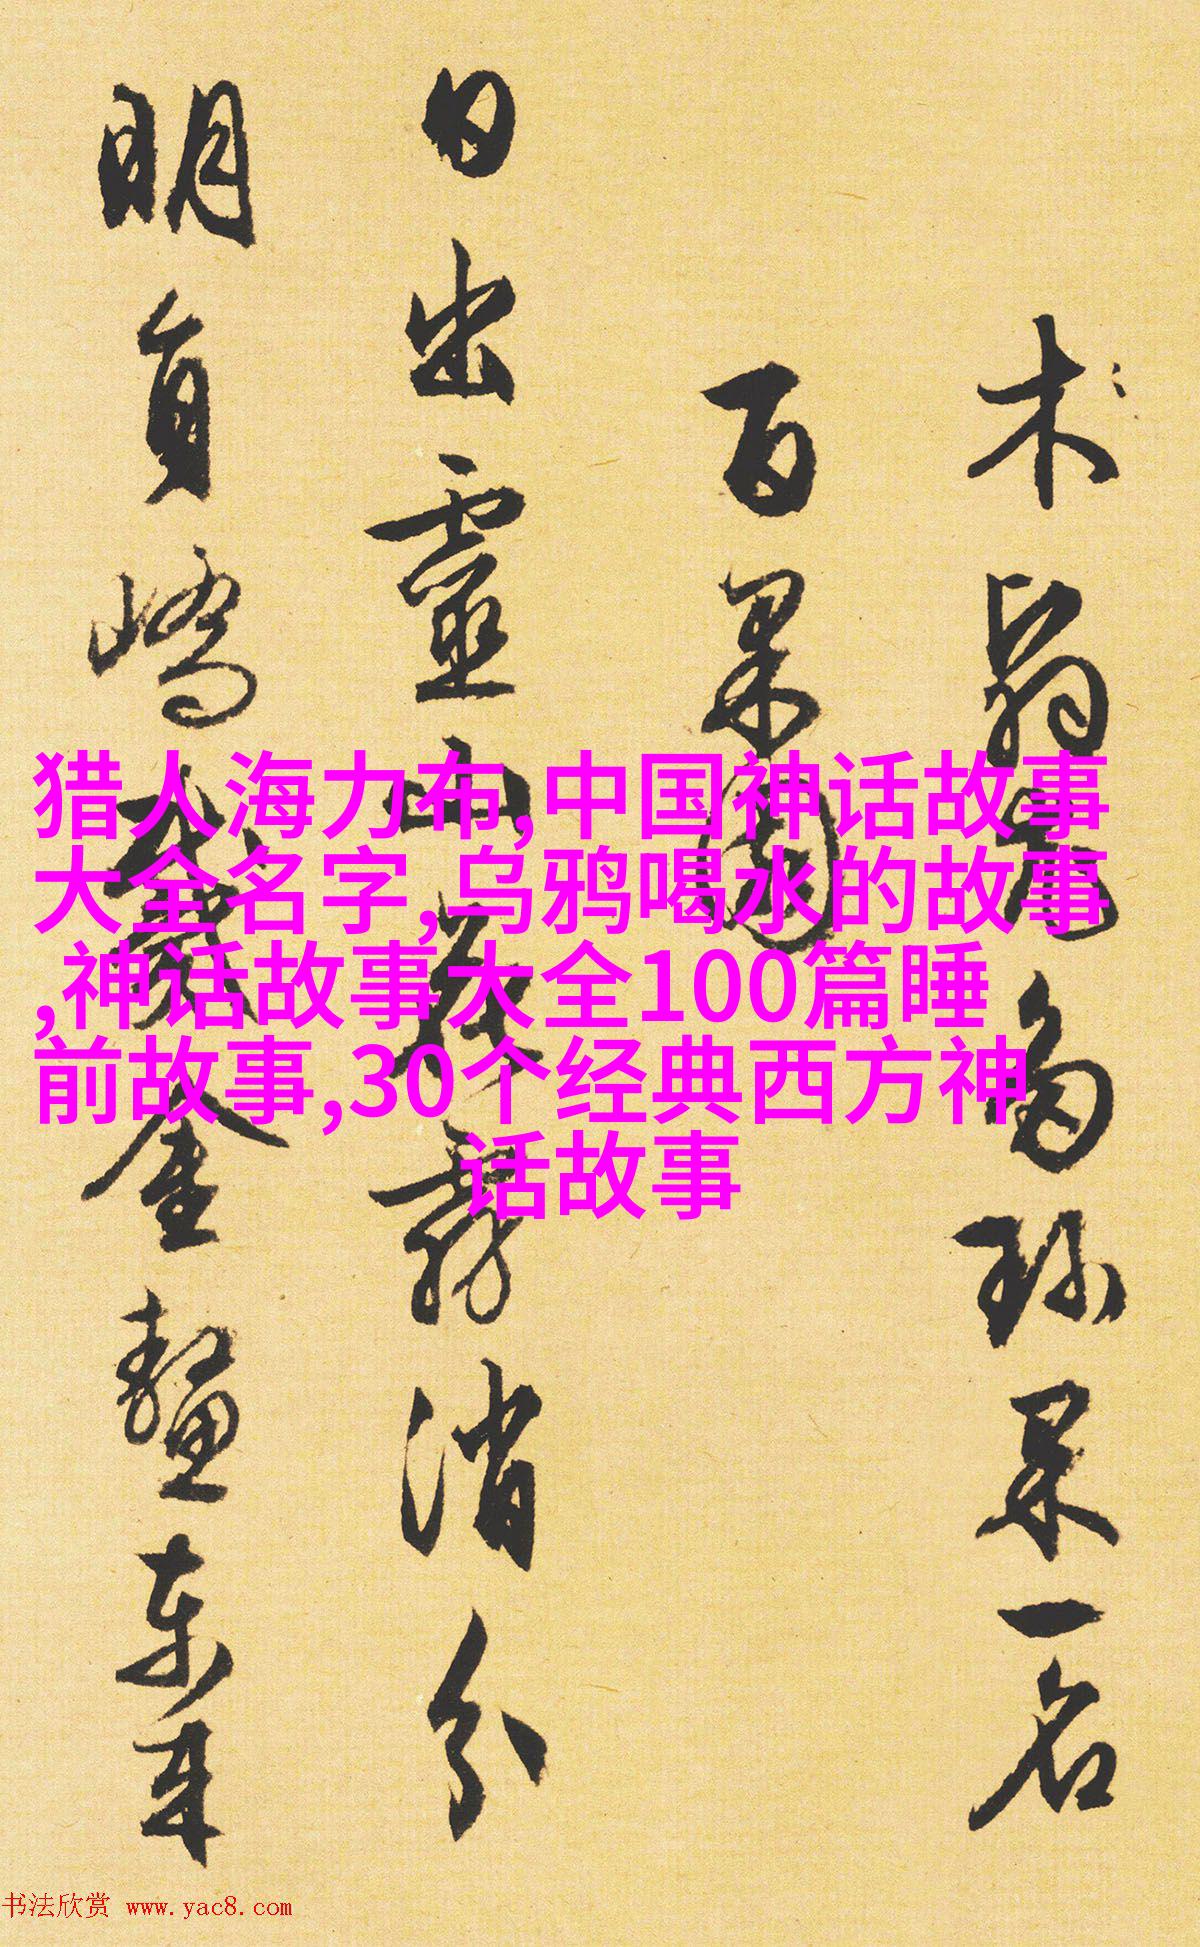 术翁寄为珎果一名
百果園
日出靈山，㪚霧消分
明員嶠
金鼇東来
猎人海力布,中国神话故事
大全名字,乌鸦喝水的故事
,神话故事大全100篇睡
前故事,30个经典西方神
话故事
书法欣赏 www.yac8.com